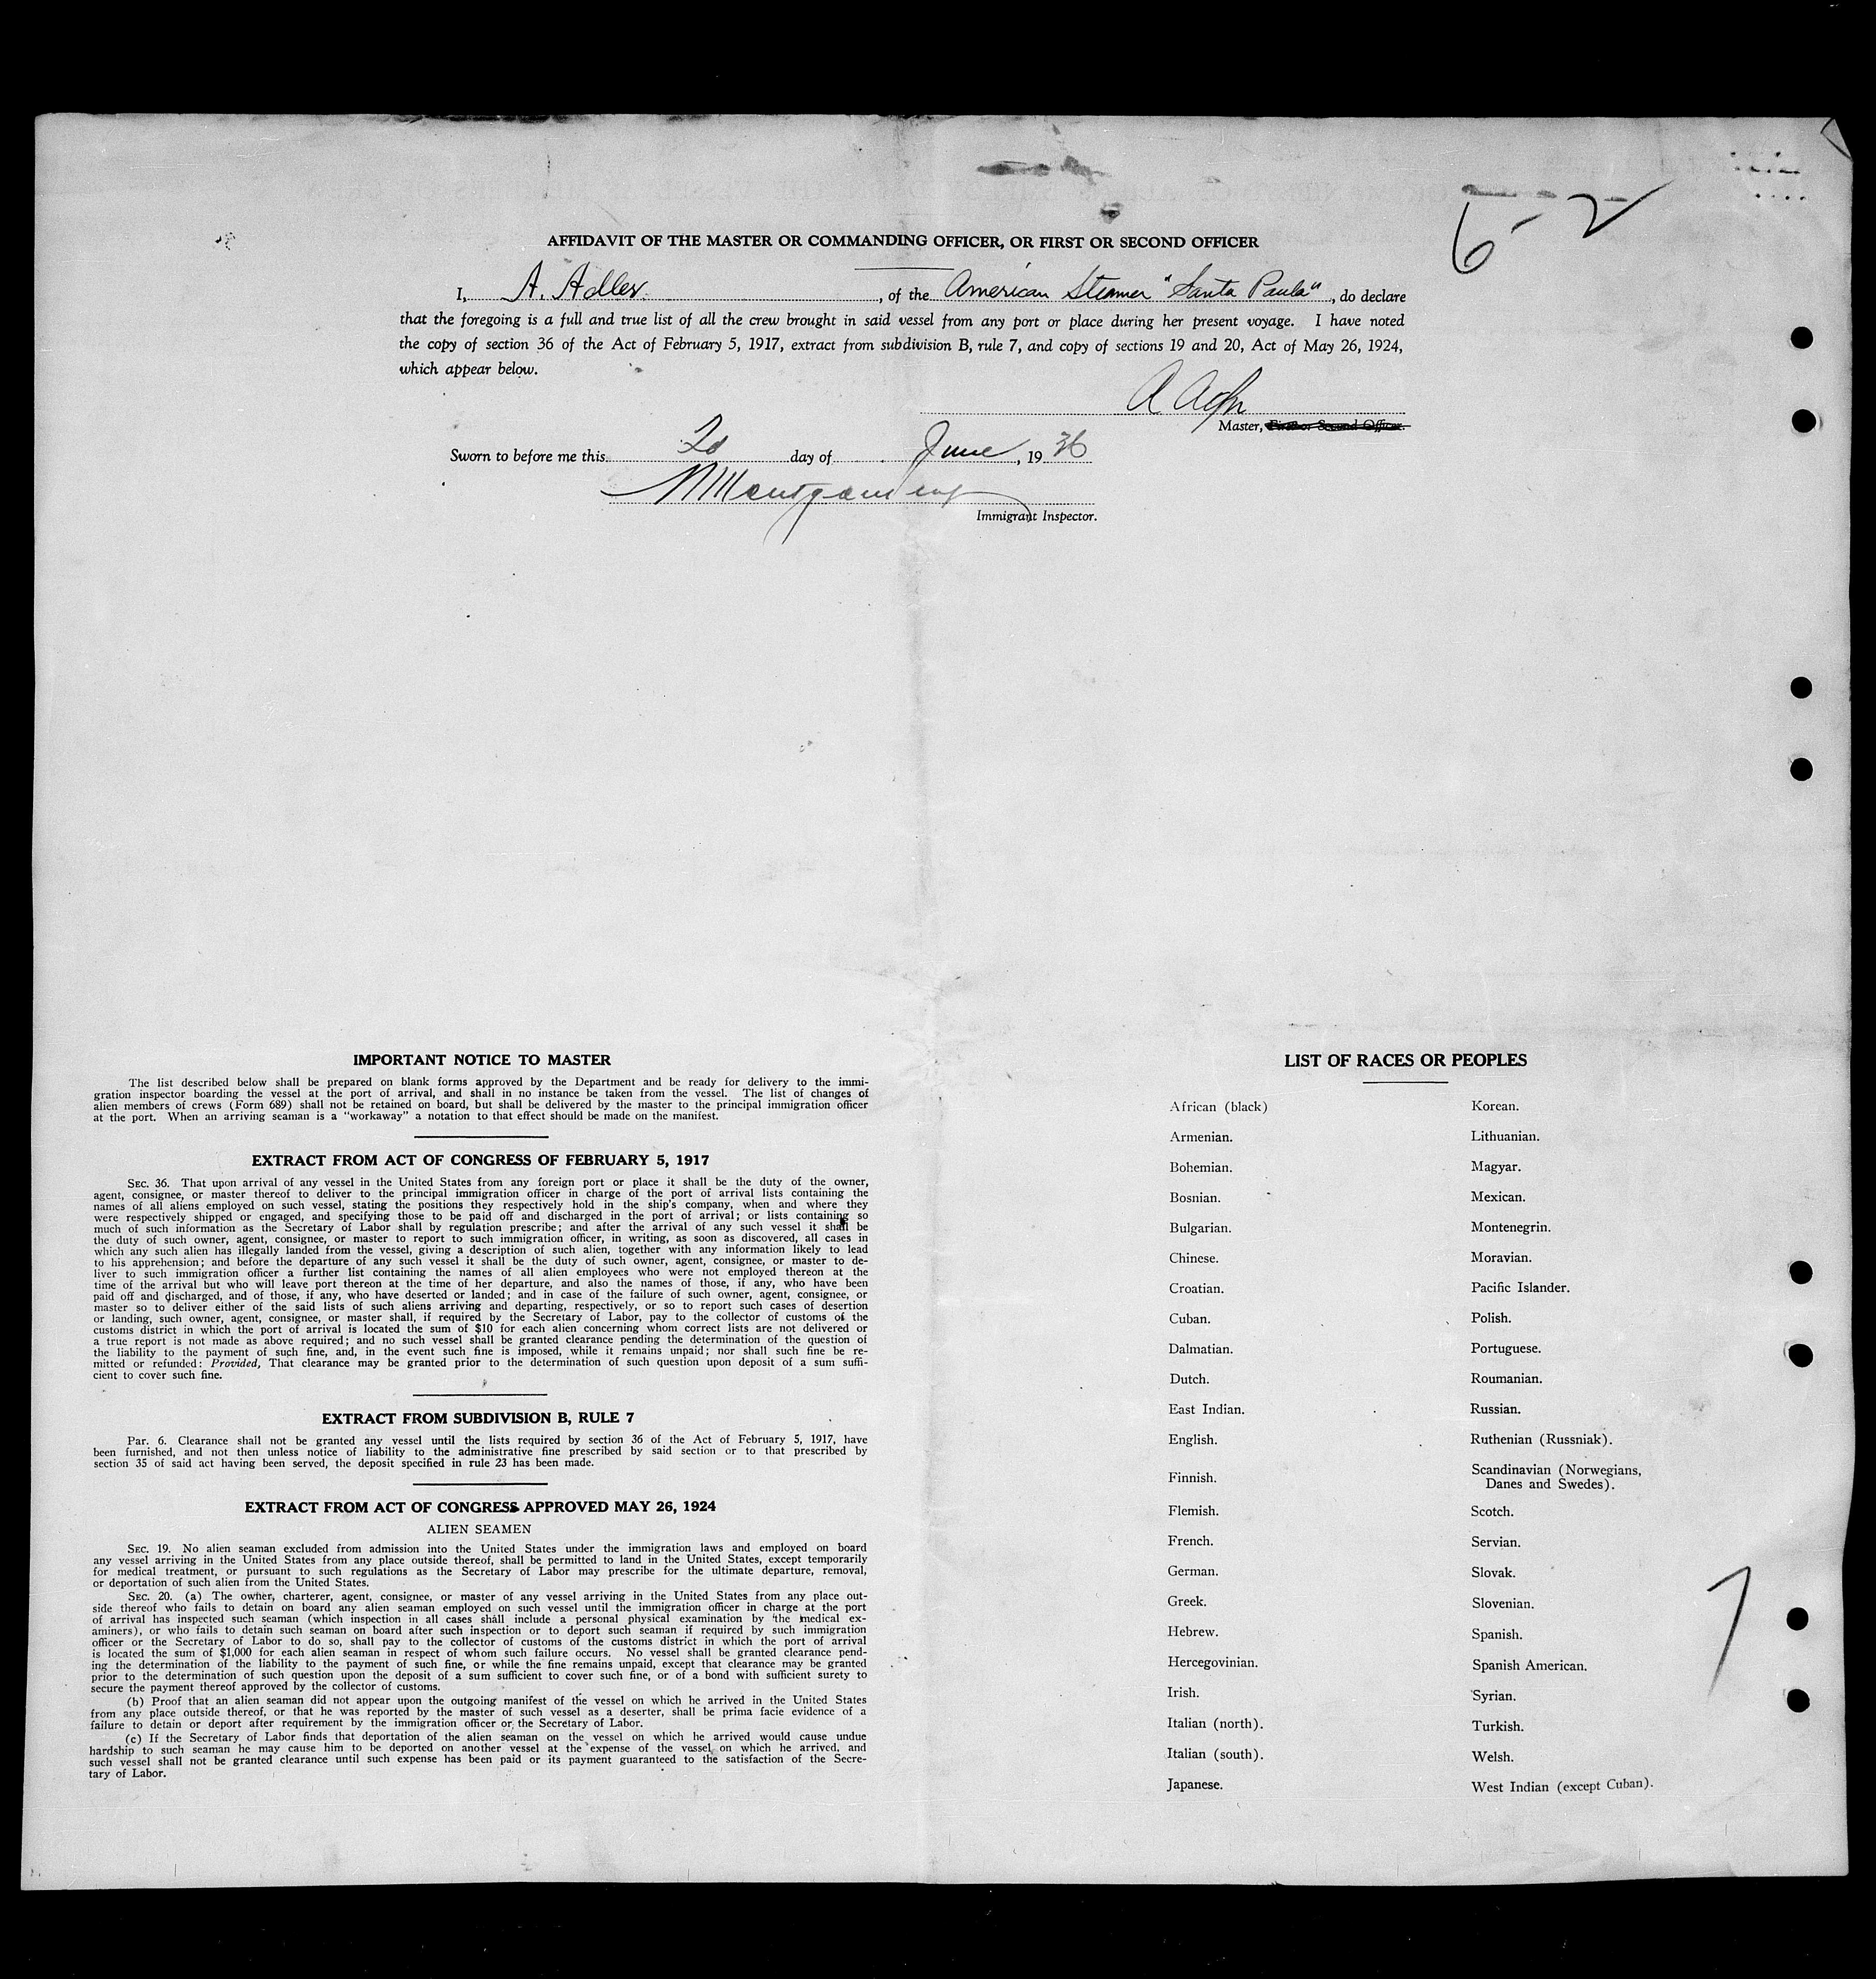 6-2
AFFIDAVIT OF THE MASTER OR COMMANDING OFFICER, OR FIRST OR SECOND OFFICER
I, A. Adler, of the American Steamer "Santa Paula", do declare
that the foregoing is a full and true list of all the crew brought in said vessel from any port or place during her present voyage. I have noted
the copy of section 36 of the Act of February 5, 1917, extract from subdivision B, rule 7, and copy of sections 19 and 20, Act of May 26, 1924,
which appear below.
A
Master, First or Second Officer.
Sworn to before me this day of June, 19 36
Immigrant Inspector.
IMPORTANT NOTICE TO MASTER
The list described below shall be prepared on blank forms approved by the Department and be ready for delivery to the immi-
gration inspector boarding the vessel at the port of arrival, and shall in no instance be taken from the vessel. The list of changes of
alien members of crews (Form 689) shall not be retained on board, but shall be delivered by the master to the principal immigration officer
at the port. When an arriving seaman is a "workaway" a notation to that effect should be made on the manifest.
EXTRACT FROM ACT OF CONGRESS OF FEBRUARY 5, 1917
SEC. 36. That upon arrival of any vessel in the United States from any foreign port or place it shall be the duty of the owner,
agent, consignee, or master thereof to deliver to the principal immigration officer in charge of the port of arrival lists containing the
names of all aliens employed on such vessel, stating the positions they respectively hold in the ship's company, when and where they
were respectively shipped or engaged, and specifying those to be paid off and discharged in the port of arrival; or lists containing so
much of such information as the Secretary of Labor shall by regulation prescribe; and after the arrival of any such vessel it shall be
the duty of such owner, agent, consignee, or master to report to such immigration officer, in writing, as soon as discovered, all cases in
which any such alien has illegally landed from the vessel, giving a description of such alien, together with any information likely to lead
to his apprehension; and before the departure of any such vessel it shall be the duty of such owner, agent, consignee, or master to de-
liver to such immigration officer a further list containing the names of all alien employees who were not employed thereon at the
time of the arrival but who will leave port thereon at the time of her departure, and also the names of those, if any, who have been
paid off and discharged, and of those, if any, who have deserted or landed; and in case of the failure of such owner, agent, consignee, or
master so to deliver either of the said lists of such aliens arriving and departing, respectively, or so to report such cases of desertion
or landing, such owner, agent, consignee, or master shall, if required by the Secretary of Labor, pay to the collector of customs of the
customs district in which the port of arrival is located the sum of $10 for each alien concerning whom correct lists are not delivered or
a true report is not made as above required; and no such vessel shall be granted clearance pending the determination of the question of
the liability to the payment of such fine, and, in the event such fine is imposed, while it remains unpaid; nor shall such fine be re-
mitted or refunded: Provided, That clearance may be granted prior to the determination of such question upon deposit of a sum suffi-
cient to cover such fine.
EXTRACT FROM SUBDIVISION B, RULE 7
Par. 6. Clearance shall not be granted any vessel until the lists required by section 36 of the Act of February 5, 1917, have
been furnished, and not then unless notice of liability to the administrative fine prescribed by said section or to that prescribed by
section 35 of said act having been served, the deposit specified in rule 23 has been made.
EXTRACT FROM ACT OF CONGRESS APPROVED MAY 26, 1924
ALIEN SEAMEN
SEC. 19. No alien seaman excluded from admission into the United States under the immigration laws and employed on board
any vessel arriving in the United States from any place outside thereof, shall be permitted to land in the United States, except temporarily
for medical treatment, or pursuant to such regulations as the Secretary of Labor may prescribe for the ultimate departure, removal,
or deportation of such alien from the United States.
SEC. 20. (a) The owner, charterer, agent, consignee, or master of any vessel arriving in the United States from any place out-
side thereof who fails to detain on board any alien seaman employed on such vessel until the immigration officer in charge at the port
of arrival has inspected such seaman (which inspection in all cases shall include a personal physical examination by the medical ex-
aminers), or who fails to detain such seaman on board after such inspection or to deport such seaman if required by such immigration
officer or the Secretary of Labor to do so, shall pay to the collector of customs of the customs district in which the port of arrival
is located the sum of $1,000 for each alien seaman in respect of whom such failure occurs. No vessel shall be granted clearance pend-
ing the determination of the liability to the payment of such fine, or while the fine remains unpaid, except that clearance may be granted
prior to the determination of such question upon the deposit of a sum sufficient to cover such fine, or of a bond with sufficient surety to
secure the payment thereof approved by the collector of customs.
(b) Proof that an alien seaman did not appear upon the outgoing manifest of the vessel on which he arrived in the United States
from any place outside thereof, or that he was reported by the master of such vessel as a deserter, shall be prima facie evidence of a
failure to detain or deport after requirement by the immigration officer or the Secretary of Labor.
(c) If the Secretary of Labor finds that deportation of the alien seaman on the vessel on which he arrived would cause undue
hardship to such seaman he may cause him to be deported on another vessel at the expense of the vessel on which he arrived, and
such vessel shall not be granted clearance until such expense has been paid or its payment guaranteed to the satisfaction of the Secre-
tary of Labor.
LIST OF RACES OR PEOPLES
African (black)
Armenian.
Bohemian.
Bosnian.
Bulgarian.
Chinese.
Croatian.
Cuban.
Dalmatian.
Dutch.
East Indian.
English.
Finnish.
Flemish.
French.
German.
Greek.
Hebrew.
Hercegovinian.
Irish.
Italian (north).
Italian (south).
Japanese.
Korean.
Lithuanian.
Magyar.
Mexican.
Montenegrin.
Moravian.
Pacific Islander.
Polish.
Portuguese.
Roumanian.
Russian.
Ruthenian (Russniak).
Scandinavian (Norwegians,
Danes and Swedes).
Scotch.
Servian.
Slovak.
Slovenian.
Spanish.
Spanish American.
Syrian.
Turkish.
Welsh.
West Indian (except Cuban).